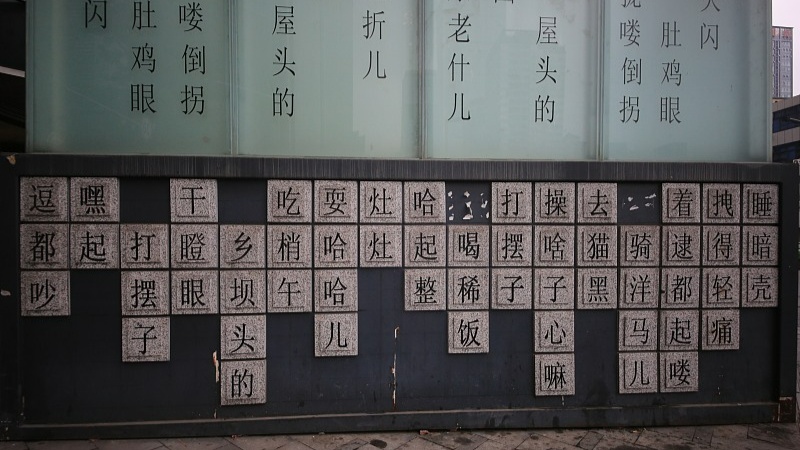 闪
肚鸡眼
喽倒拐
屋头的
折儿
老什儿
屋头的
喽倒拐
肚鸡眼
闪
逗都吵
嘿起
打摆子
干瞪眼
乡坝头的
吃梢午
耍哈哈儿
灶灶
哈起整
喝稀饭
打摆子
操啥子心嘛
去猫黑
骑洋马儿
着逮都起喽
拽得轻痛
睡暗壳